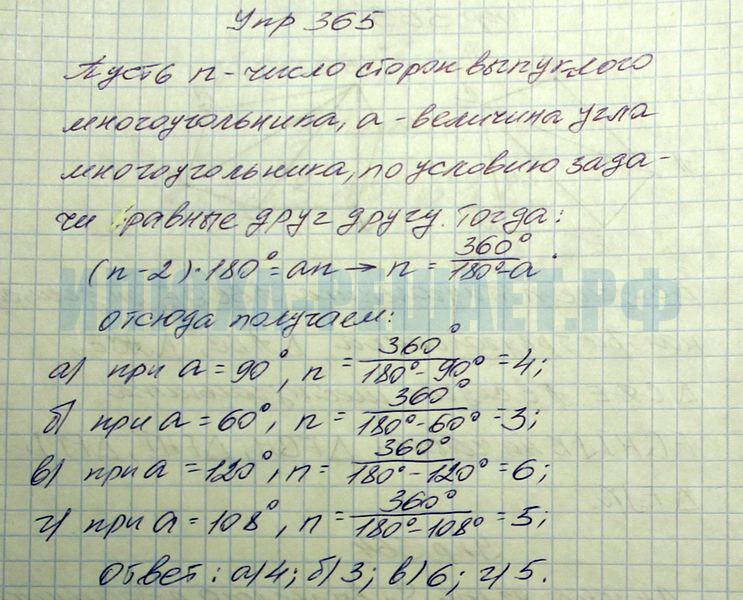 Упр 365
Пусть n - число сторон выпуклого
многоугольника, a - величина угла
многоугольника, по условию зада-
чи равные друг другу. Тогда:
(n-2)·180°=an → n = 360°/180°-a.
ИЛИ РЕШАЕТ.РФ
отсюда получаем:
а) при a = 90°, n = 360°/180°-90° = 4;
б) при a = 60°, n = 360°/180°-60° = 3;
в) при a = 120°, n = 360°/180°-120° = 6;
г) при a = 108°, n = 360°/180°-108° = 5;
Ответ: а)4; б)3; в)6; г)5.